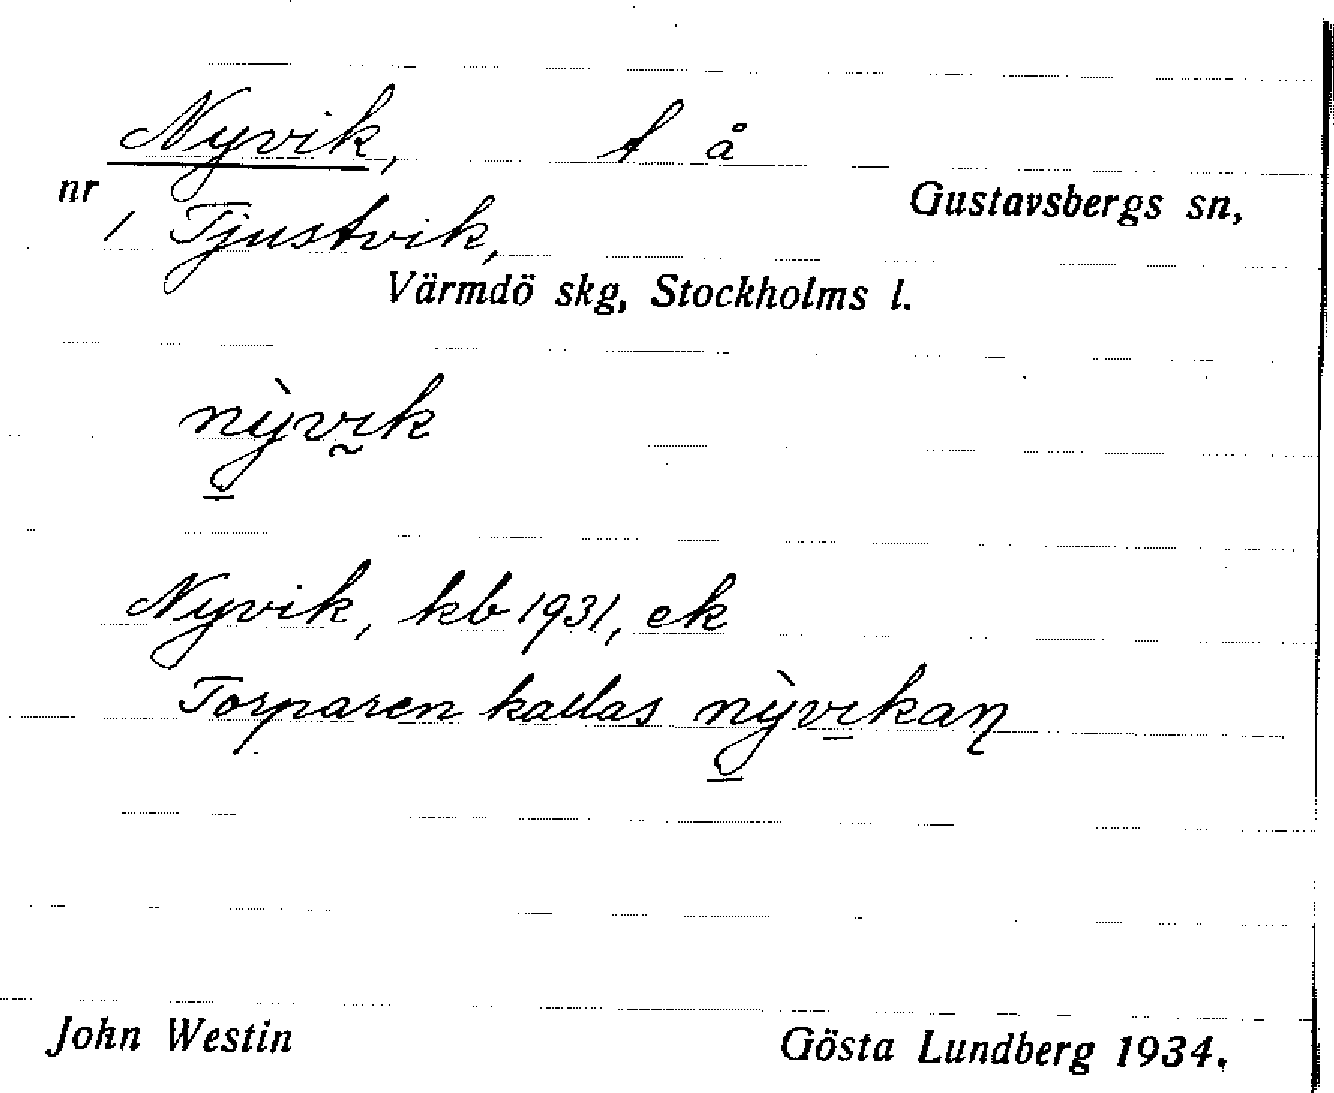 Nyvik, t å
nr 1 Tjustvik, Gustavsbergs sn,
Värmdö skg, Stockholms l.
nỳvık
Nyvik, kb 1931, ek
Torparen kallas nỳvıkaɳ
John Westin Gösta Lundberg 1934.